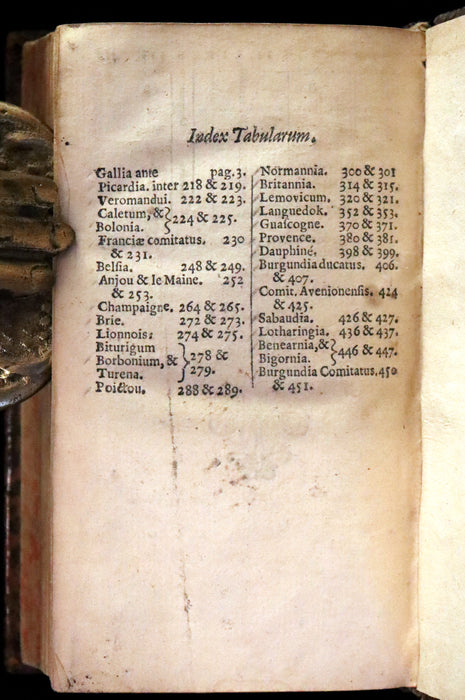 Index Tabularum.
Gallia ante pag. 3.
Picardia. inter 218 & 219.
Veromandui. 222 & 223.
Caletum, & } 224 & 225.
Bolonia.
Franciæ comitatus. 230
& 231.
Belsia. 248 & 249.
Anjou & le Maine. 252
& 253.
Champaigne. 264 & 265.
Brie. 272 & 273.
Lionnois: 274 & 275.
Biturigum
Borbonium, & } 278 &
Turena. 279.
Poictou. 288 & 289.
Normannia. 300 & 301
Britannia. 314 & 315.
Lemovicum. 320 & 321.
Languedok. 352 & 353.
Guascogne. 370 & 371.
Provence. 380 & 381.
Dauphiné. 398 & 399.
Burgundia ducatus. 406.
& 407.
Comit. Avenionensis. 424
& 425.
Sabaudia. 426 & 427.
Lotharingia. 436 & 437.
Benearnia, & } 446 & 447.
Bigornia.
Burgundia Comitatus. 450
& 451.